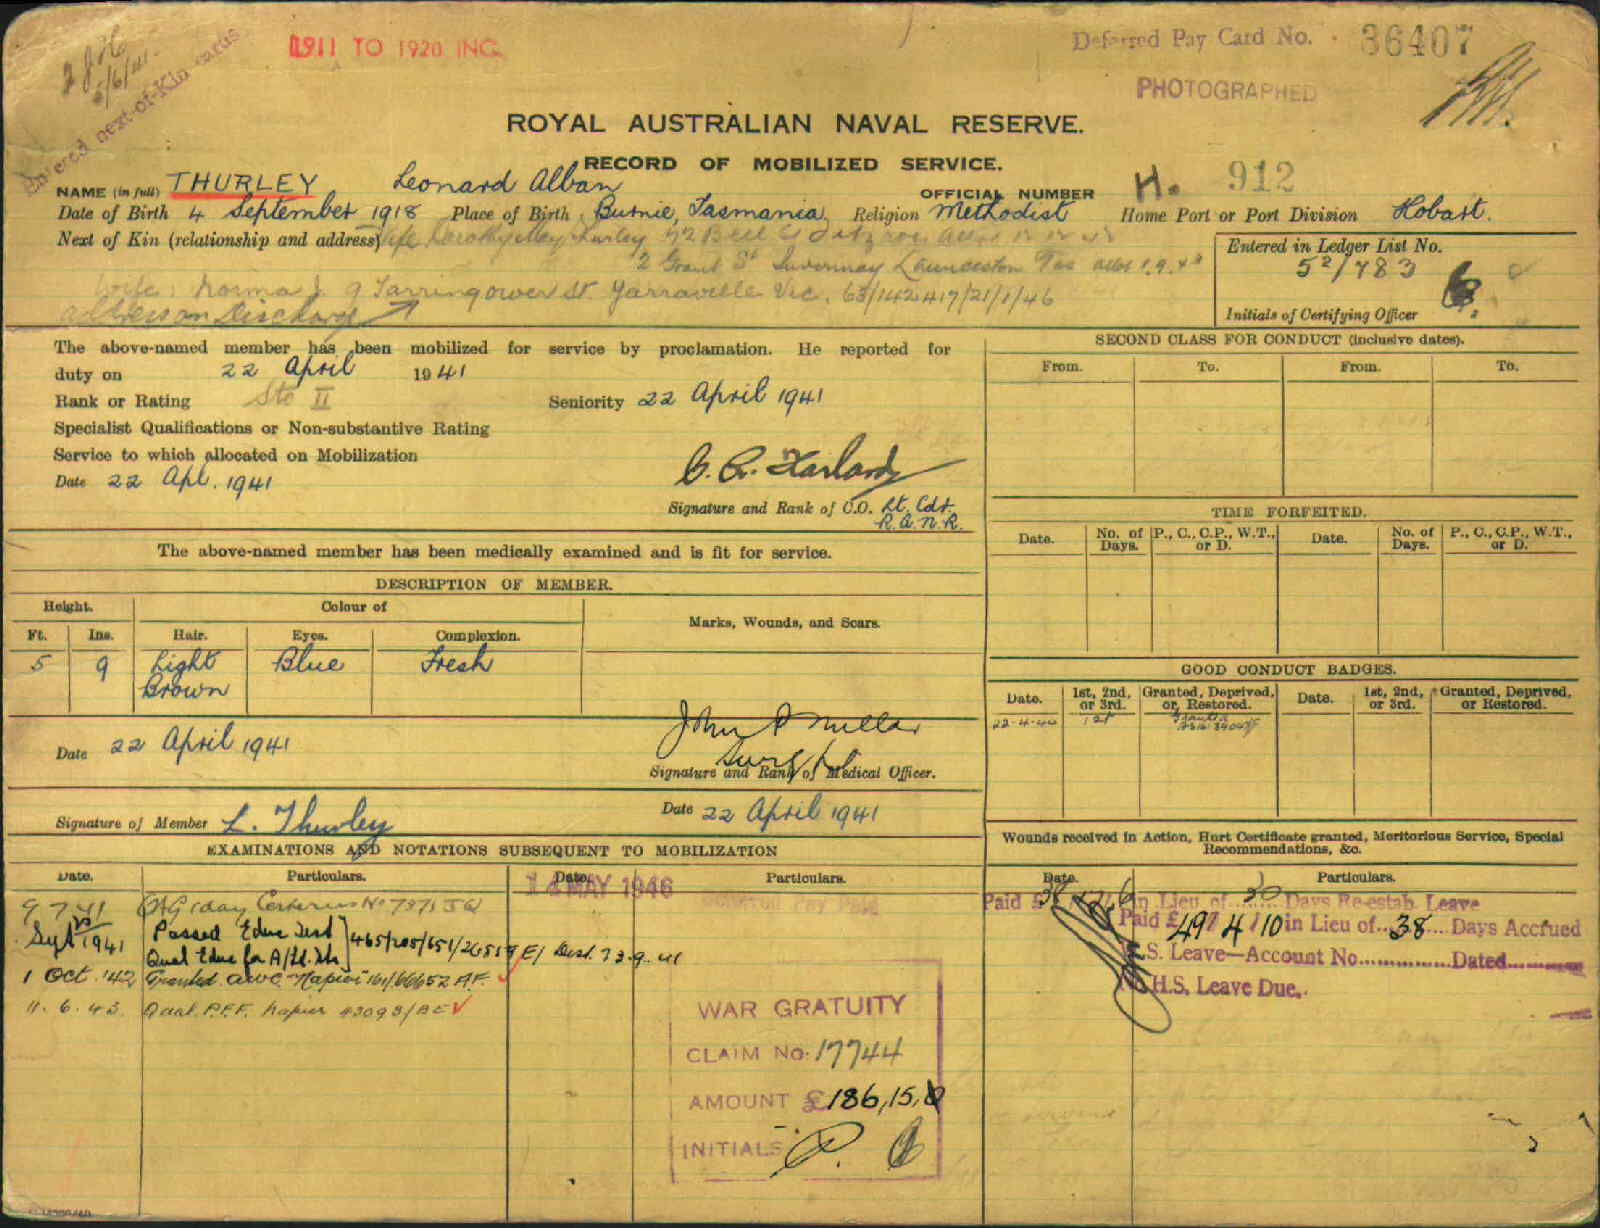 1911 TO 1920 INC.
Deferred Pay Card No. 36407
5/6/41.
Entered next-of-Kin cards
PHOTOGRAPHED
ROYAL AUSTRALIAN NAVAL RESERVE.
RECORD OF MOBILIZED SERVICE.
NAME (in full) THURLEY Leonard Alban OFFICIAL NUMBER H. 912
Date of Birth 4 September 1918 Place of Birth Burnie, Tasmania Religion Methodist Home Port or Port Division Hobart.
Next of Kin (relationship and address) Wife Dorothy May Thurley 42 Bell St Fitzroy
2 Grant St Invermay Launceston Tas
Wife: Norma J. 9 Tarrengower St. Yarraville Vic. 63/142417/21/1/46
Address on Discharge
Entered in Ledger List No.
52/783
Initials of Certifying Officer
The above-named member has been mobilized for service by proclamation. He reported for
duty on 22 April 1941
Rank or Rating Sto II Seniority 22 April 1941
Specialist Qualifications or Non-substantive Rating
Service to which allocated on Mobilization
Date 22 Apl. 1941
Signature and Rank of C.O. Lt. Cdr.
R.A.N.R.
The above-named member has been medically examined and is fit for service.
DESCRIPTION OF MEMBER.
Height. Colour of Marks, Wounds, and Scars.
Ft. Ins. Hair. Eyes. Complexion.
5 9 Light Brown Blue Fresh
Date 22 April 1941
Signature and Rank of Medical Officer.
Date 22 April 1941
Signature of Member L. Thurley
SECOND CLASS FOR CONDUCT (inclusive dates).
From. To. From. To.
TIME FORFEITED.
Date. No. of Days. P., C., C.P., W.T., or D. Date. No. of Days. P., C., C.P., W.T., or D.
GOOD CONDUCT BADGES.
Date. 1st, 2nd, or 3rd. Granted, Deprived, or Restored. Date. 1st, 2nd, or 3rd. Granted, Deprived, or Restored.
22-4-44 1st Granted
EXAMINATIONS AND NOTATIONS SUBSEQUENT TO MOBILIZATION
Date. Particulars. Date. Particulars.
14 MAY 1946 Deferred Pay Paid
9 7 41 1 day Cerberus No 7371
Sept 1941 Passed Educ Test
Qual Educ for A/Ldg. Sto 465/205/651/26859 E/ Dated 23.9.41
1 Oct. '42 Granted AWC Napier 161/66652 A.F.
11. 6. 43. Qual. P.F.F. Napier 43093/BE
WAR GRATUITY
CLAIM NO: 17744
AMOUNT £186,15,0
INITIALS
Wounds received in Action, Hurt Certificate granted, Meritorious Service, Special
Recommendations, &c.
Date. Particulars.
Paid £38 in Lieu of 30 Days Re-estab. Leave
Paid £49/4/10 in Lieu of 38 Days Accrued
S. Leave—Account No. Dated
H.S. Leave Due.